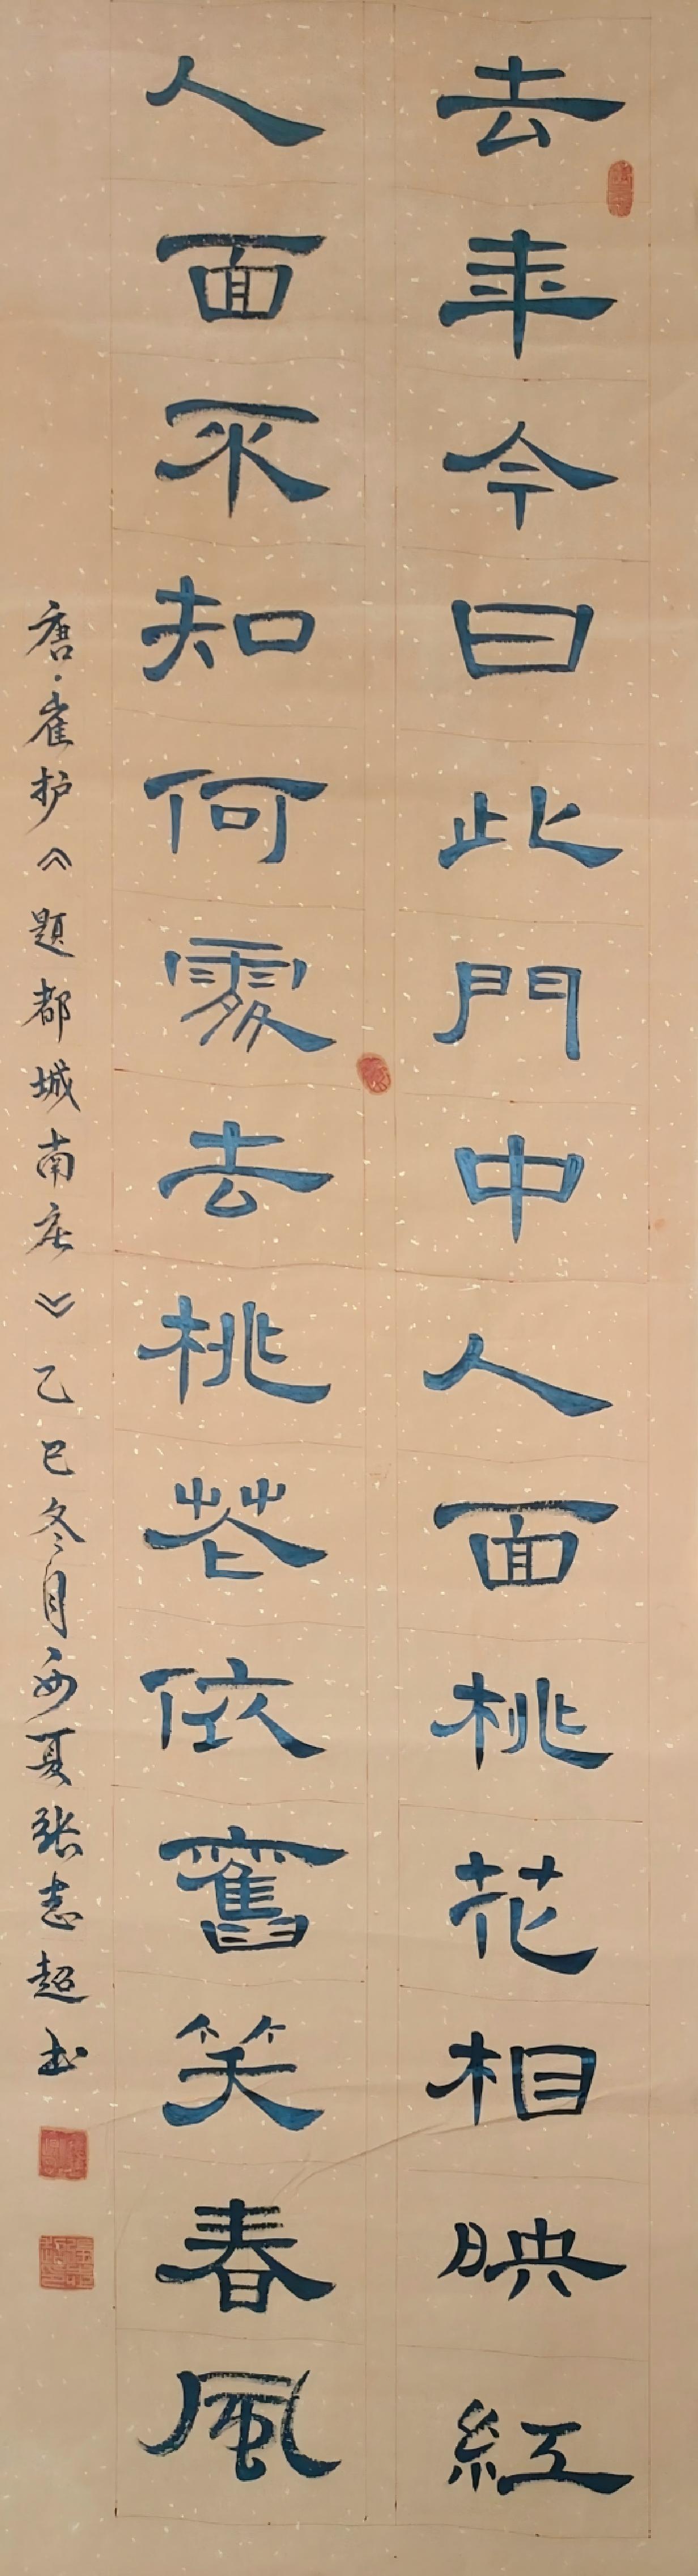 去年今日此門中人面桃花相映紅
人面不知何處去桃花依舊笑春風
唐·崔护《题都城南庄》乙巳冬月夏张志超书